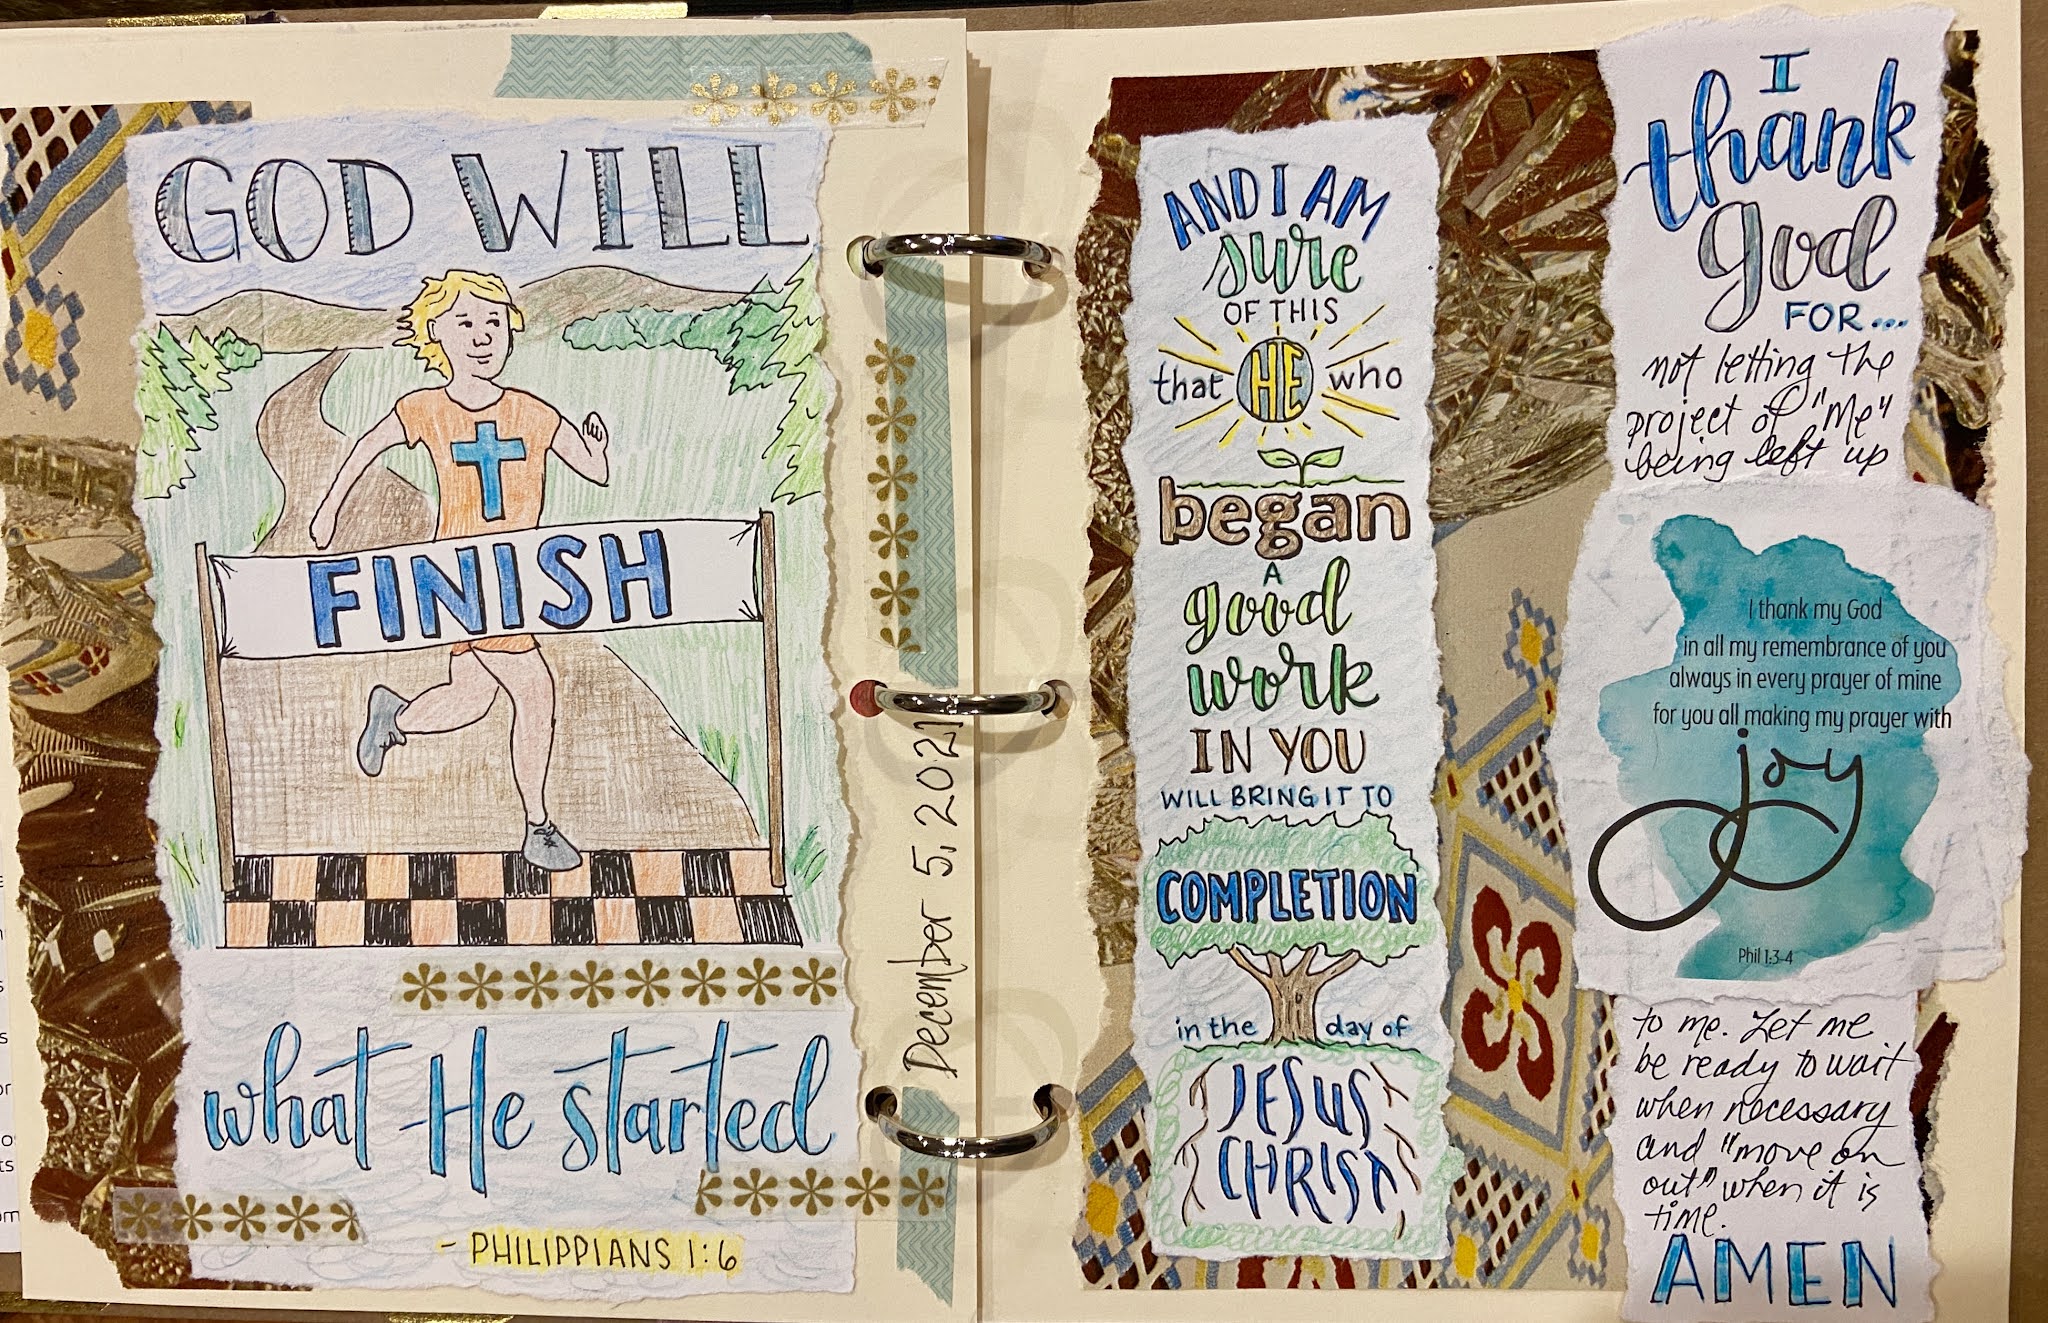 GOD WILL
FINISH
what He started
- PHILIPPIANS 1:6
December 5, 2021
AND I AM
sure
OF THIS
that HE who
began
A
good
work
IN YOU
WILL BRING IT TO
COMPLETION
in the day of
JESUS
CHRIST
I
thank
god
FOR...
not letting the
project of "Me"
being left up
I thank my God
in all my remembrance of you
always in every prayer of mine
for you all making my prayer with
joy
Phil 1:3-4
to me. Let me
be ready to wait
when necessary
and "move on
out" when it is
time.
AMEN